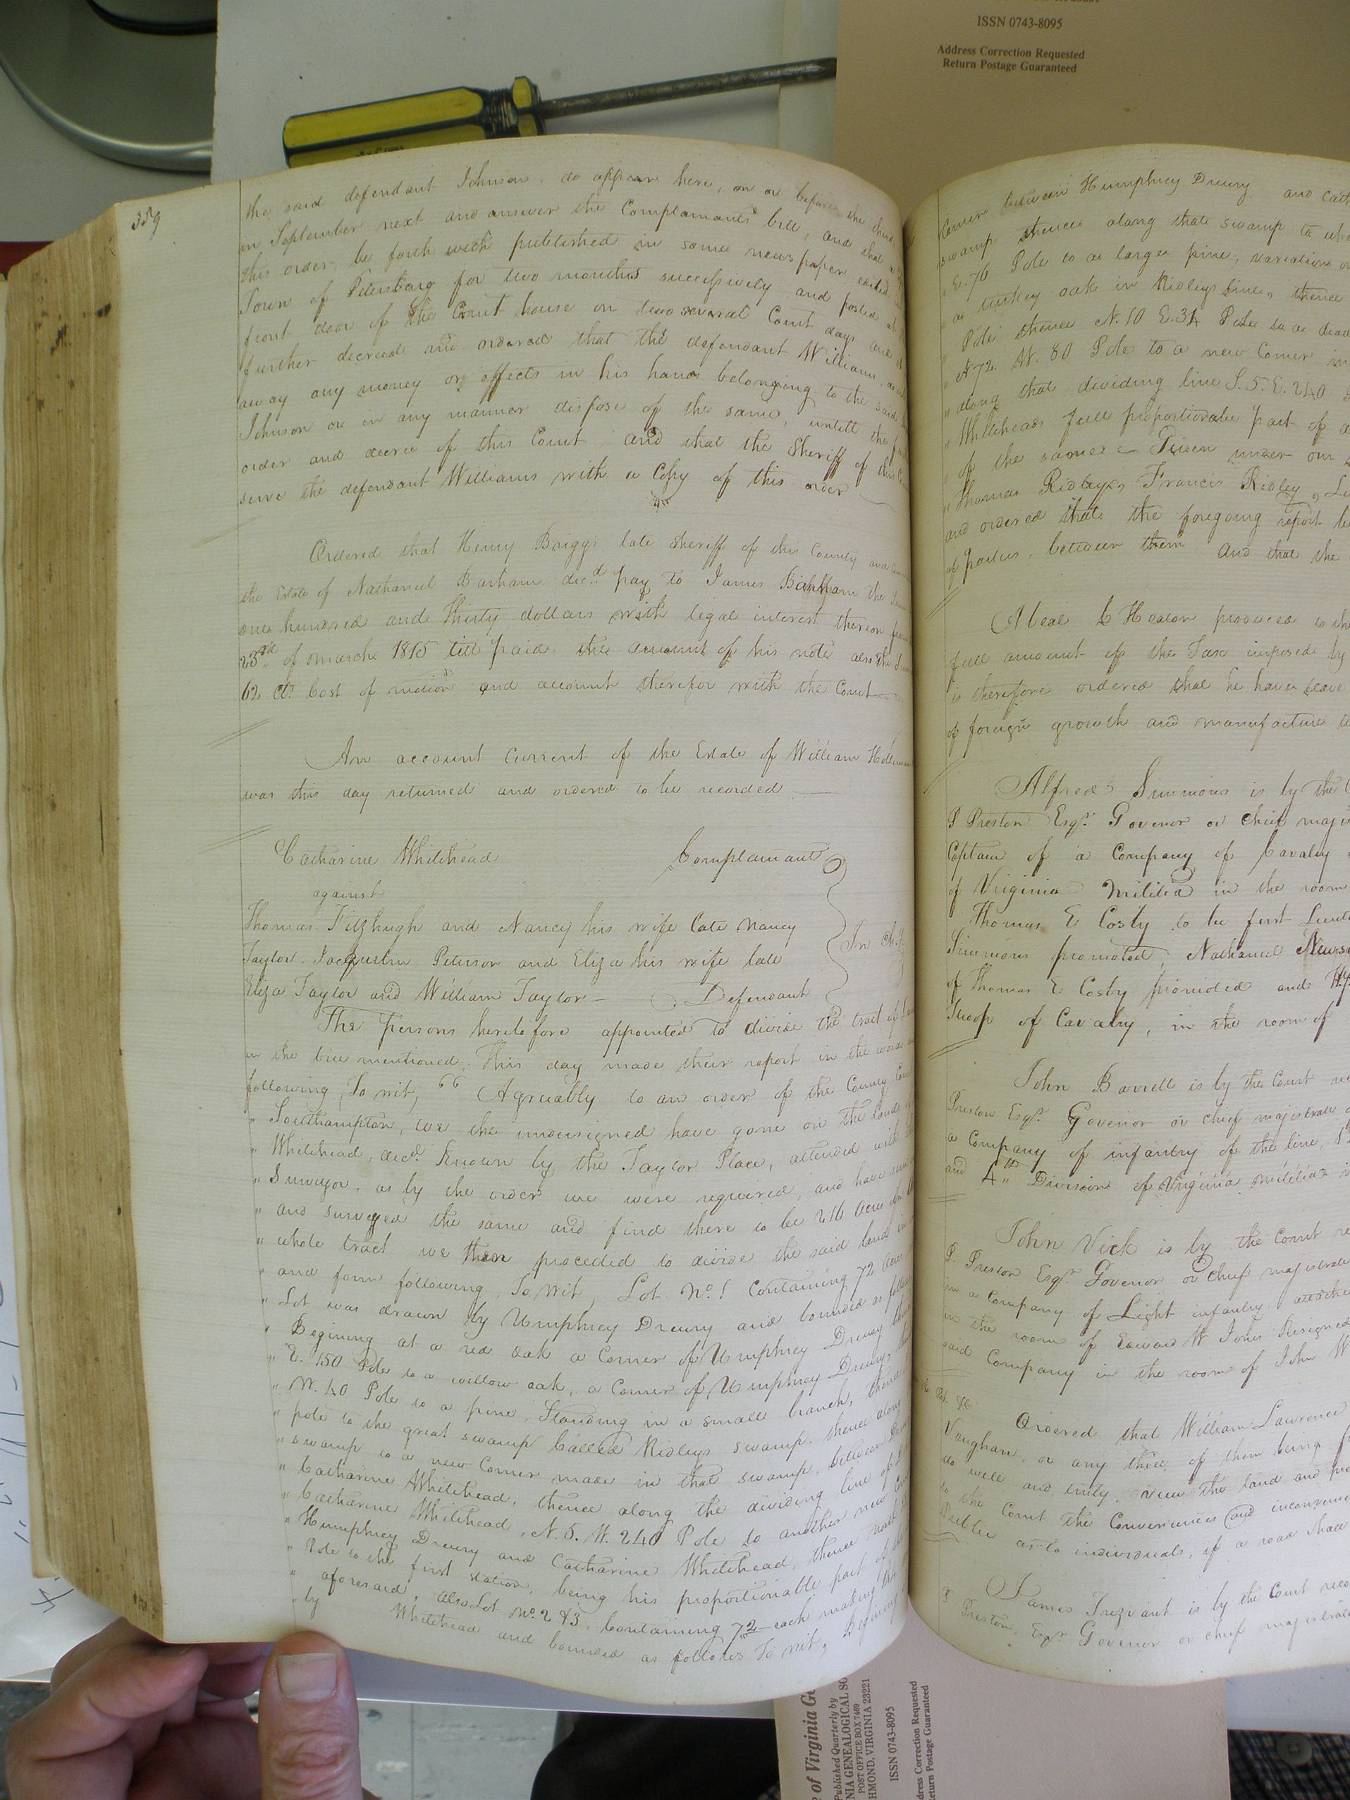 ISSN 0743-8095
Address Correction Requested
Return Postage Guaranteed
359
the said defendant Johnson do appear here, on or before the
in September next and answer the Complainants bill, and that a
this order be forth with published in some news paper edited
Town of Petersburg for two months successively and posted at
front door of the Court house on two several Court days and
further decreed and ordered that the defendant Williams
away any money or effects in his hands belonging to the said
Johnson or in any manner dispose of the same, untill the
order and decree of this Court and that the Sheriff of this
serve the defendant Williams with a Copy of this order
Ordered that Henry Briggs late Sheriff of this County
the Estate of Nathaniel Barham decd. pay to James the
one hundred and thirty dollars with legal interest thereon from
23rd of march 1815 till paid the amount of his note also the
62 cts Cost of motion and account therefor with the Court
An account Current of the Estate of William
was this day returned and ordered to be recorded
Catharine Whitehead Complainant
against
Thomas Fitzhugh and Nancy his wife late Nancy
Taylor Jacquelin Peterson and Eliza his wife late In
Eliza Taylor and William Taylor Defendant
The persons heretofore appointed to divide the tract of
in the bill mentioned, this day made their report in the words
following, To wit, "Agreeably to an order of the County
" Southampton, we the undersigned have gone on the Lands
" Whitehead, decd. Known by the Taylor Place, attended with
" Surveyor as by the order we were required, and have
" and surveyed the same and find there to be 216 acres in
" whole tract we then proceeded to divide the said land in
" and form following, To wit, Lot No. 1 Containing 72 acres
" Lot was drawn by Umphrey Drewry and bounded as follows
" Begining at a red oak a Corner of Umphrey Drewry
" E. 150 Pole to a willow oak, a Corner of Umphrey Drewrys
" W. 40 Pole to a pine, Standing in a small branch, thence
" pole to the great swamp Called Ridleys swamp, thence along
" swamp to a new Corner made in that swamp, between
" Catharine Whitehead, thence along the dividing line of
" Catharine Whitehead, N. 5. W. 240 Pole to another new
" Humphrey Drewry and Catharine Whitehead, thence
" Pole to the first station, being his proportionable part of
" aforesaid, also Lot No. 2 & 3 Containing 72 each making
" by Whitehead and bounded as follows To wit, Begining
Corner between Humphrey Drewry and
swamp thence along that swamp to
E. 76 Pole to a large pine, variation
a turkey oak in Ridleys line, thence
Pole thence N. 10 E. 34 Pole to a dead
N 72 W. 80 Pole to a new Corner
along that dividing line S. 5. E. 240
Whiteheads full proportionable part of
of the same Given under our
Thomas Ridley, Francis Ridley
and ordered that the foregoing report
of parties between them and that the
produced to the
full amount of the Tax imposed by
is therefore ordered that he have leave
of foreign growth and manufacture
Alfred Simmons is by the
P Preston Esqr. Govenor or chief
Captain of a Company of Cavalry
of Virginia Militia in the room
Thomas E Cosby to be first
Simmons promoted, Nathaniel
of Thomas E Cosby promoted and
Troop of Cavalry, in the room of
John Barrett is by the Court
Preston Esqr. Govenor or chief majestrate
a Company of infantry of the line,
and 4th Division of Virginia militia
John Vick is by the Court
P. Preston Esqr. Govenor or chief majestrate
in a Company of Light infantry attached
in the room of Edward W Jones Resigned
said Company in the room of John W
Ordered that William Lawrence
Vaughan, or any three of them being
do well and truly view the land and
to the Court the Conveniences and
Public as to individuals, if a road shall
James Trezvant is by the Court
P Preston, Esqr Govenor or chief majestrate
of Virginia
Published Quarterly by
GENEALOGICAL
POST OFFICE BOX 7469
VIRGINIA 23221
ISSN 0743-8095
Address Correction Requested
Return Postage Guaranteed